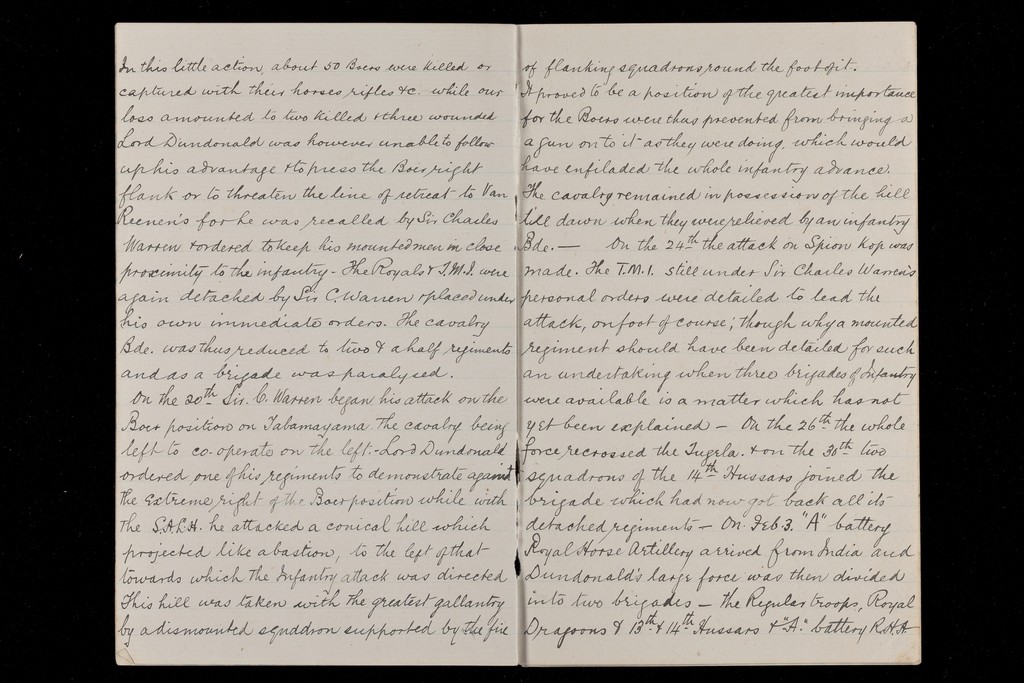 In this little action, about 50 Boers were killed or
captured with their horses rifles &c. while our
loss amounted to two killed & three wounded
Lord Dundonald was however unable to follow
up his advantage & to press the Boer right
flank or to threaten the line of retreat to Van
Reenen's for he was recalled by Sir Charles
Warren & ordered to keep his mounted men in close
proximity to the infantry - The Royals & T.M.I. were
again detached by Sir C. Warren & placed under
his own immediate orders. The cavalry
Bde. was thus reduced to two & a half regiments
and as a brigade was paralysed.
On the 20th Sir. C. Warren began his attack on the
Boer position on Tabamayama. The cavalry being
left to co-operate on the left. - Lord Dundonald
ordered one of his regiments to demonstrate against
the extreme right of the Boer position while with
the S.A.L.H. he attacked a conical hill which
projected like a bastion, to the left of that
towards which the Infantry attack was directed
This hill was taken with the greatest gallantry
by a dismounted squadron supported by the fire
of flanking squadrons round the foot of it.
It proved to be a position of the greatest importance
for the Boers were thus prevented from bringing a
a gun on to it as they were doing, which would
have enfiladed the whole infantry advance.
The cavalry remained in possession of the hill
till dawn when they were relieved by an infantry
Bde. — On the 24th the attack on Spion Kop was
made. The T.M.I. still under Sir Charles Warren's
personal orders were detailed to lead the
attack, on foot of course; though why a mounted
regiment should have been detailed for such
an undertaking when three brigades of Infantry
were available is a matter which has not
yet been explained — On the 26th the whole
force recrossed the Tugela. & on the 30th two
squadrons of the 14th Hussars joined the
brigade which had now got back all its
detached regiments — On Feb. 3. "A" battery
Royal Horse Artillery arrived from India and
Dundonald's large force was then divided
into two brigades — the Regular troops, Royal
Dragoons & 13th & 14th Hussars & "A." battery R.H.A.